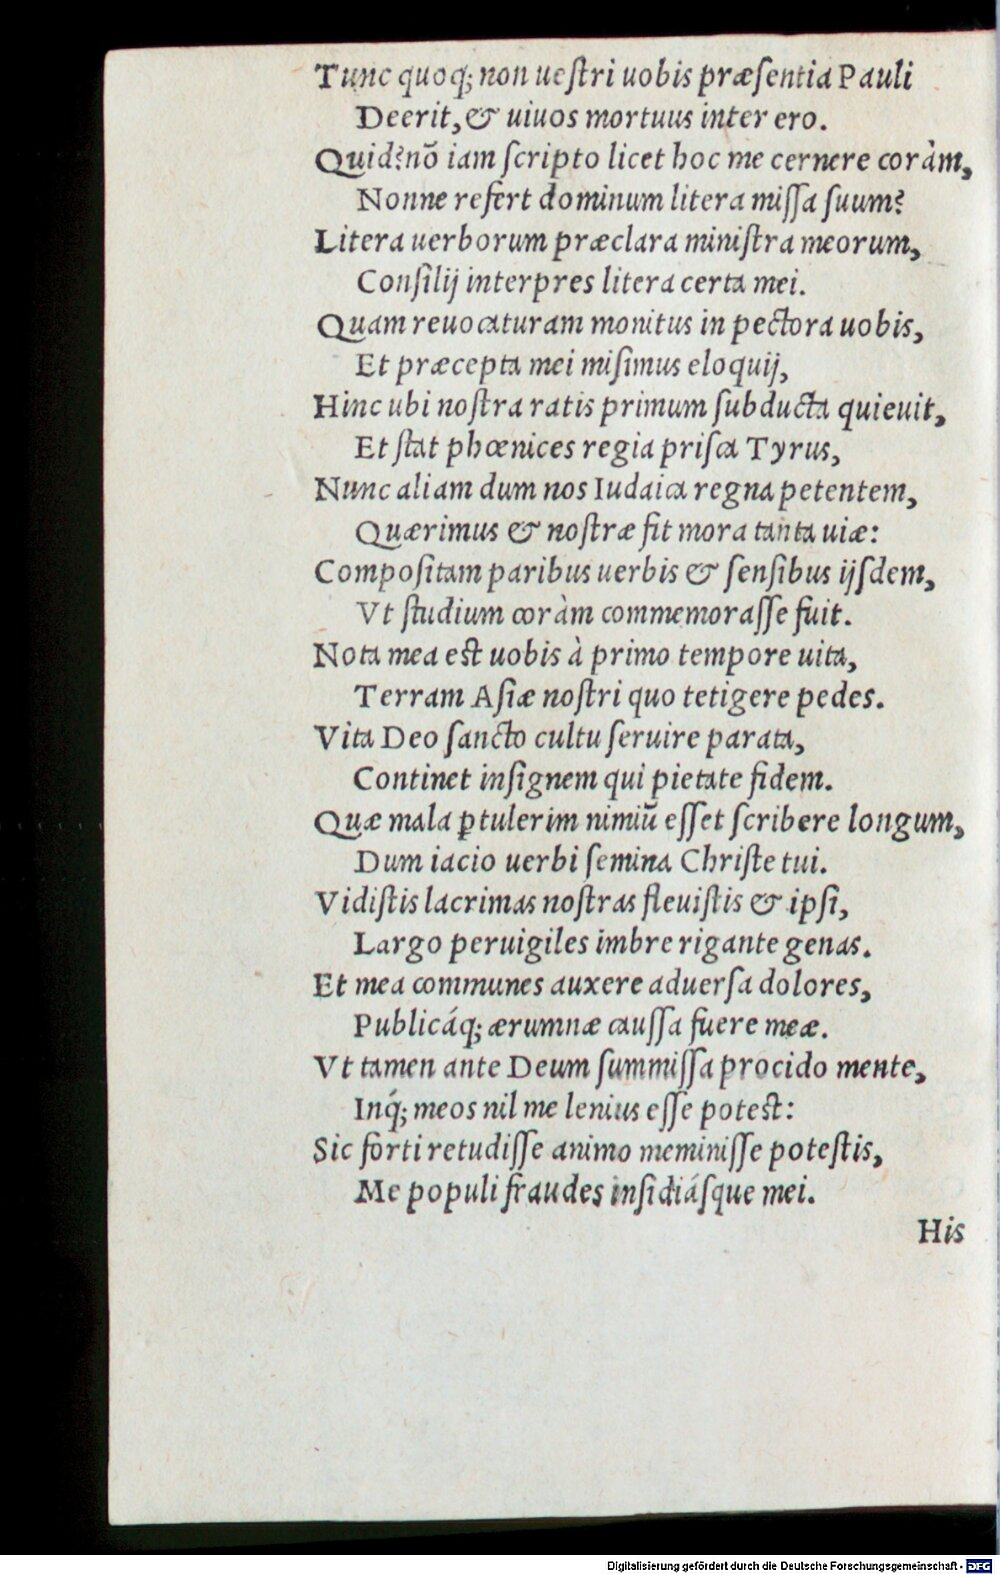 Tunc quoq; non uestri uobis præsentia Pauli
Deerit, & uiuos mortuus inter ero.
Quid? nõ iam scripto licet hoc me cernere coràm,
Nonne refert dominum litera missa suum?
Litera uerborum præclara ministra meorum,
Consilij interpres litera certa mei.
Quam reuocaturam monitus in pectora uobis,
Et præcepta mei misimus eloquij,
Hinc ubi nostra ratis primum subducta quieuit,
Et stat phœnices regia prisca Tyrus,
Nunc aliam dum nos Iudaica regna petentem,
Quærimus & nostræ fit mora tanta uiæ:
Compositam paribus uerbis & sensibus ijsdem,
Vt studium coràm commemorasse fuit.
Nota mea est uobis à primo tempore uita,
Terram Asiæ nostri quo tetigere pedes.
Vita Deo sancto cultu seruire parata,
Continet insignem qui pietate fidem.
Quæ mala ꝑtulerim nimiũ esset scribere longum,
Dum iacio uerbi semina Christe tui.
Vidistis lacrimas nostras fleuistis & ipsi,
Largo peruigiles imbre rigante genas.
Et mea communes auxere aduersa dolores,
Publicáq; ærumnæ caussa fuere meæ.
Vt tamen ante Deum summissa procido mente,
Inq́; meos nil me lenius esse potest:
Sic forti retudisse animo meminisse potestis,
Me populi fraudes insidiásque mei.
His
Digitalisierung gefördert durch die Deutsche Forschungsgemeinschaft - DFG